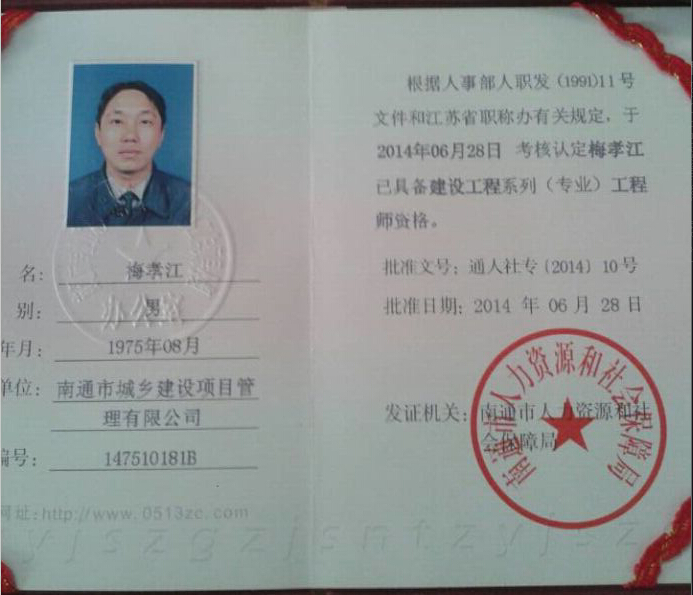 名: 梅孝江
别: 男
年月: 1975年08月
单位: 南通市城乡建设项目管
理有限公司
编号: 147510181B
网址:http://www.0513zc.com
yjszgzjsntzyjsz
办公室
根据人事部人职发(1991)11号
文件和江苏省职称办有关规定，于
2014年06月28日 考核认定梅孝江
已具备建设工程系列（专业）工程
师资格。
批准文号：通人社专〔2014〕10号
批准日期：2014 年 06 月 28 日
发证机关：南通市人力资源和社
会保障局
南通市人力资源和社会保障局